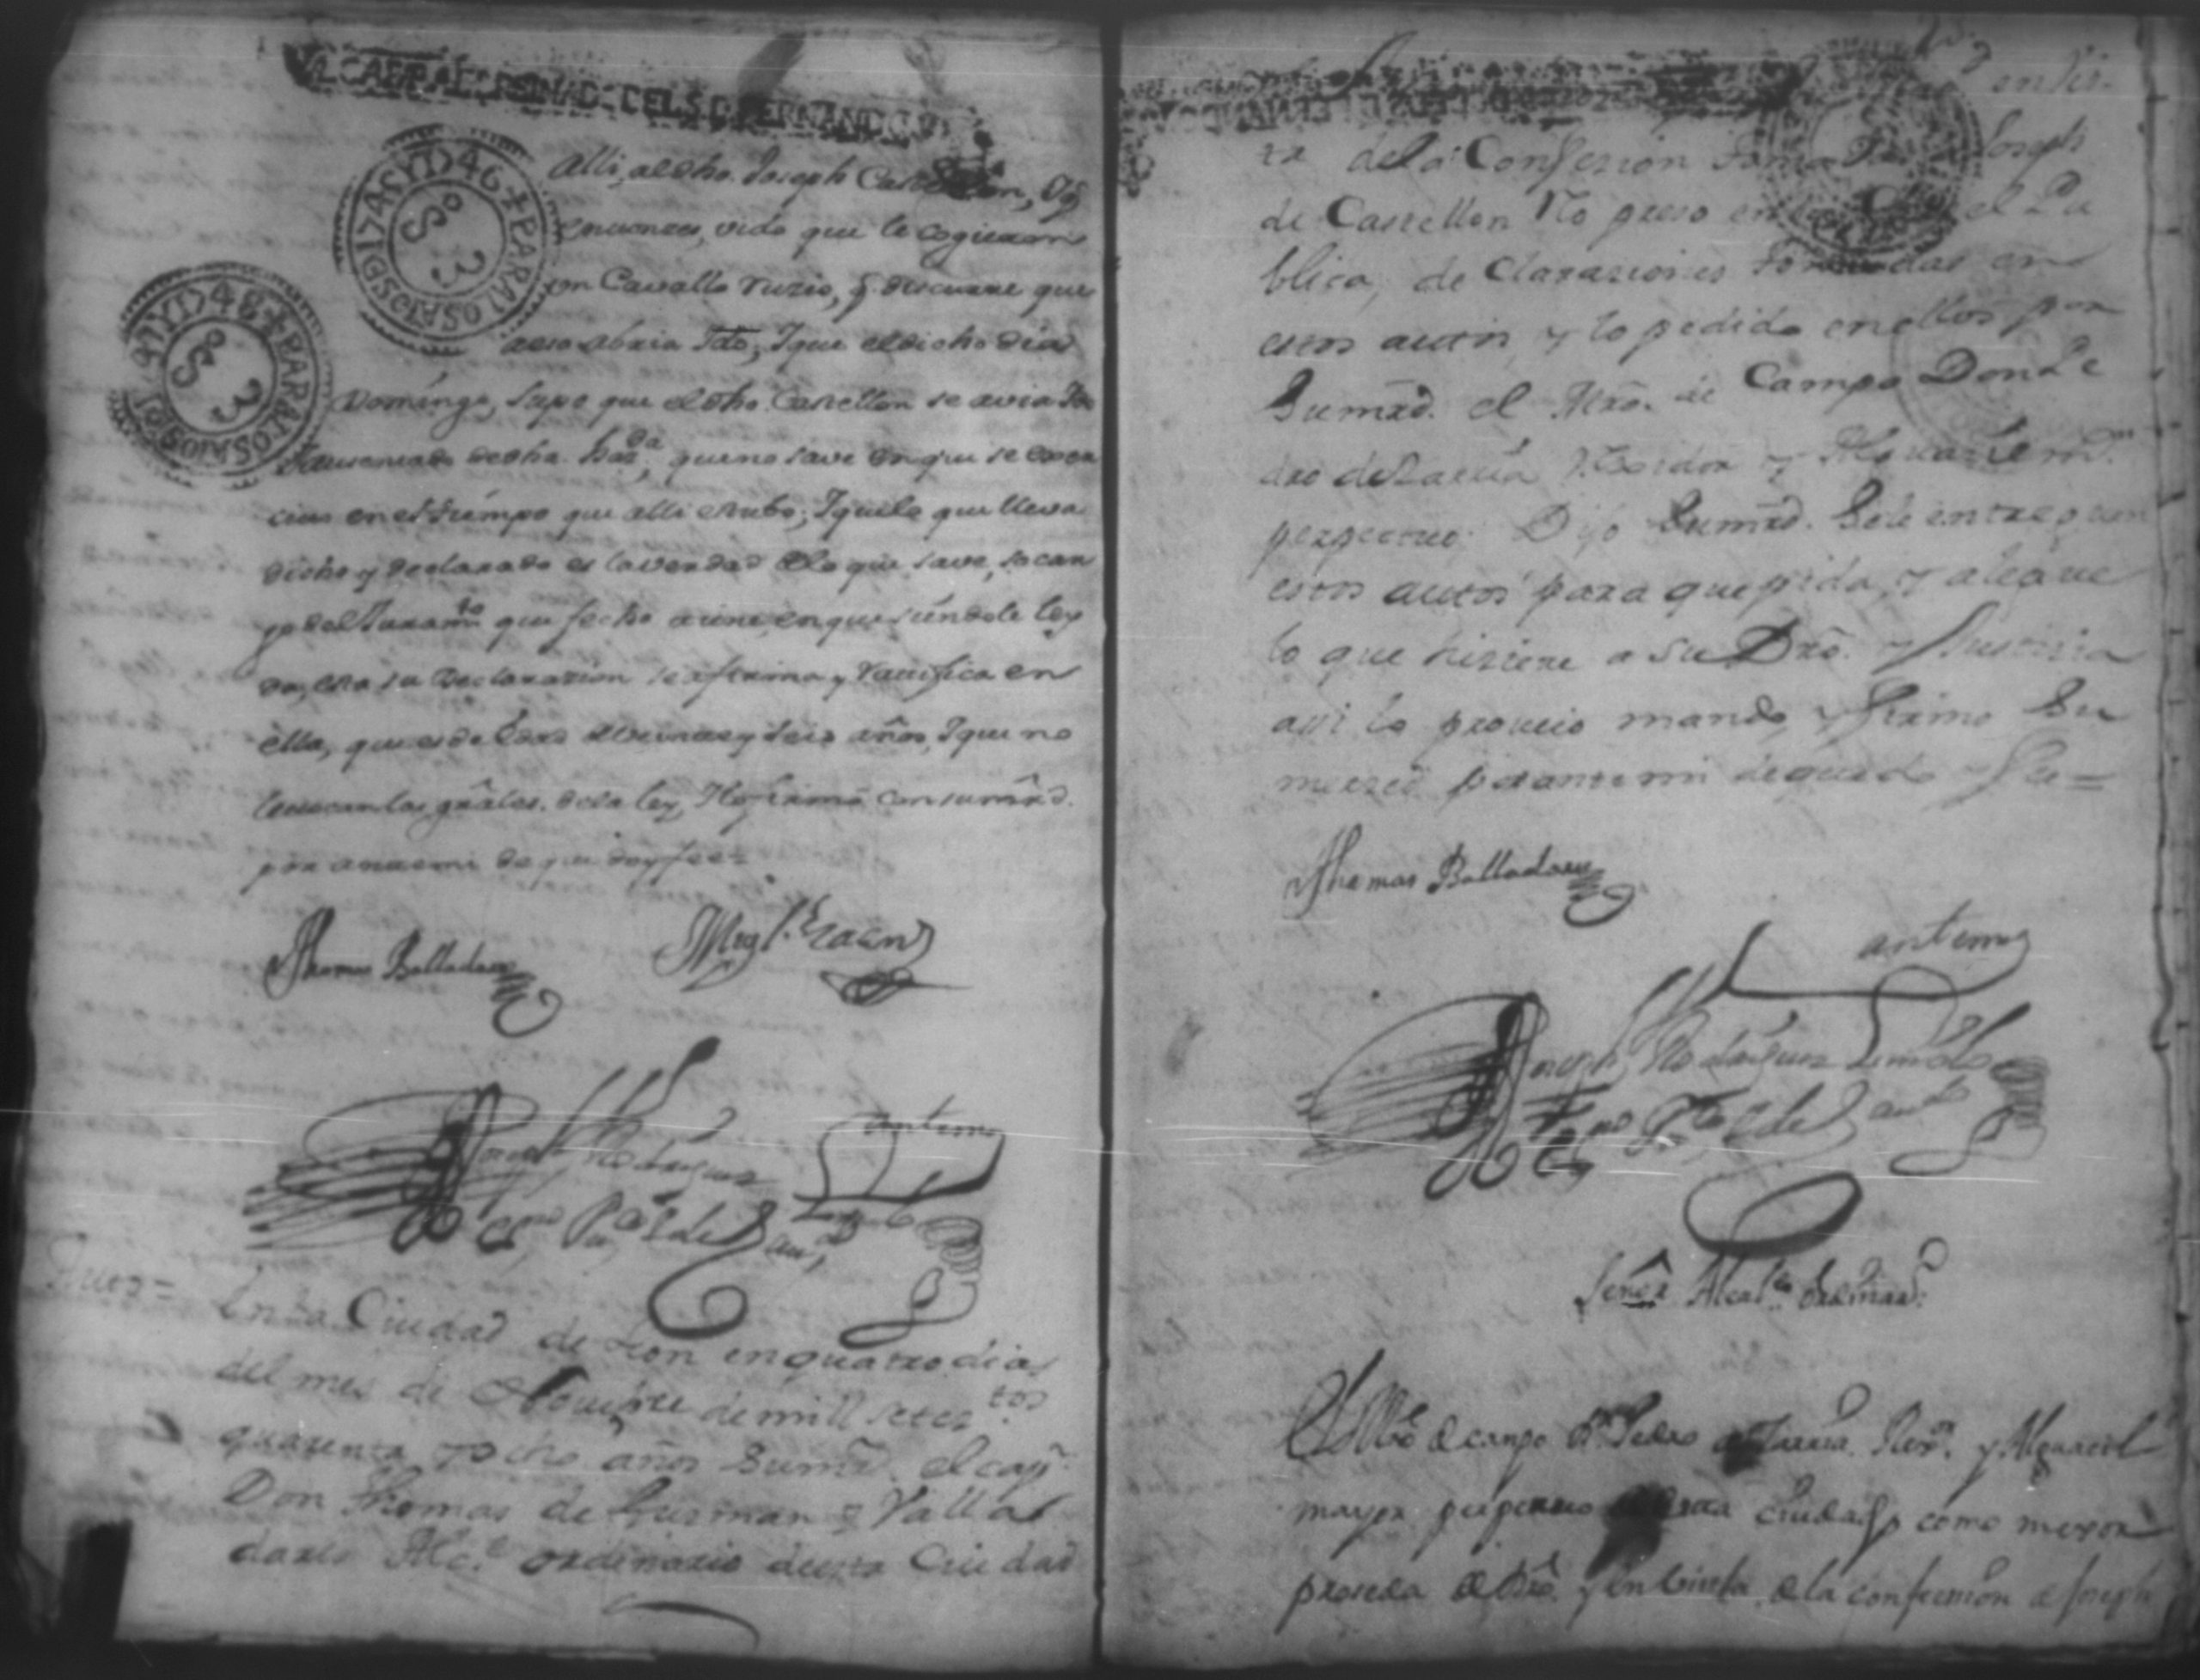 VALGA PARA EL REINADO DEL S. D. FERNANDO VI
PARA LOS AÑOS DE 1745 Y 1746
So 3
PARA LOS AÑOS DE 1747 Y 1748
So 3
alli, al dho. Joseph Castellon, y
entonzes, vido que le cogieron
un Cavallo ruzio, q. discurre que
Domingo, supo que el dho. Castellon se avia
Yausentado de dha. haz.da, que no save en que se exer
cito en el tiempo que alli estubo; Y que lo que lleva
dicho y declarado es la verdad lo que save, so car
go del Juram.to que fecho tiene, en que siendole ley
da, esta su Declarazion se afirma y ratifica en
ella, que es de edad de veinte y seis años, Y que no
le tocan las grâles. de la ley, Y lo firmó con sumrd.
por antemi de que doy fee=
Thomas Balladares
Antemi
Joseph Rodriguez
Essno. Pu.co
Autos=
En la Ciudad de Leon en quatro dias
del mes de Nouiembre de mill setez.tos
quarenta y ocho años Sumrd. el cap.n
Don Thomas de Gusman y Valla
dares Alc.e ordinario de esta Ciudad
en vis
ta de la Confesion tomada a Joseph
de Castellon Reo preso en la Carcel Pu
blica, declaraziones tomadas en
estos autos y lo pedido en ellos por
Sumrd. el Mro. de Campo Don Pe
dro de Sarria Rexidor y Alguazil m.or
perpetuo. Dijo Sumrd. Se le entreguen
estos autos para que pida, y alegue
lo que hiziere a su Dro. y Justizia
assi lo proueio mando, y firmo Su
merced por ante mi de que doy fee=
Thomas Balladares
antemi
Joseph Rodriguez
Essno. Pu.co
Señor Alcal.de Ordinar.o
El Mro. de campo Dn. Pedro de Sarria Rex.r y Alguacil
mayor perpetuo de esta Ciudad, como mexor
proseda de Dro. y en bista de la confession de Joseph